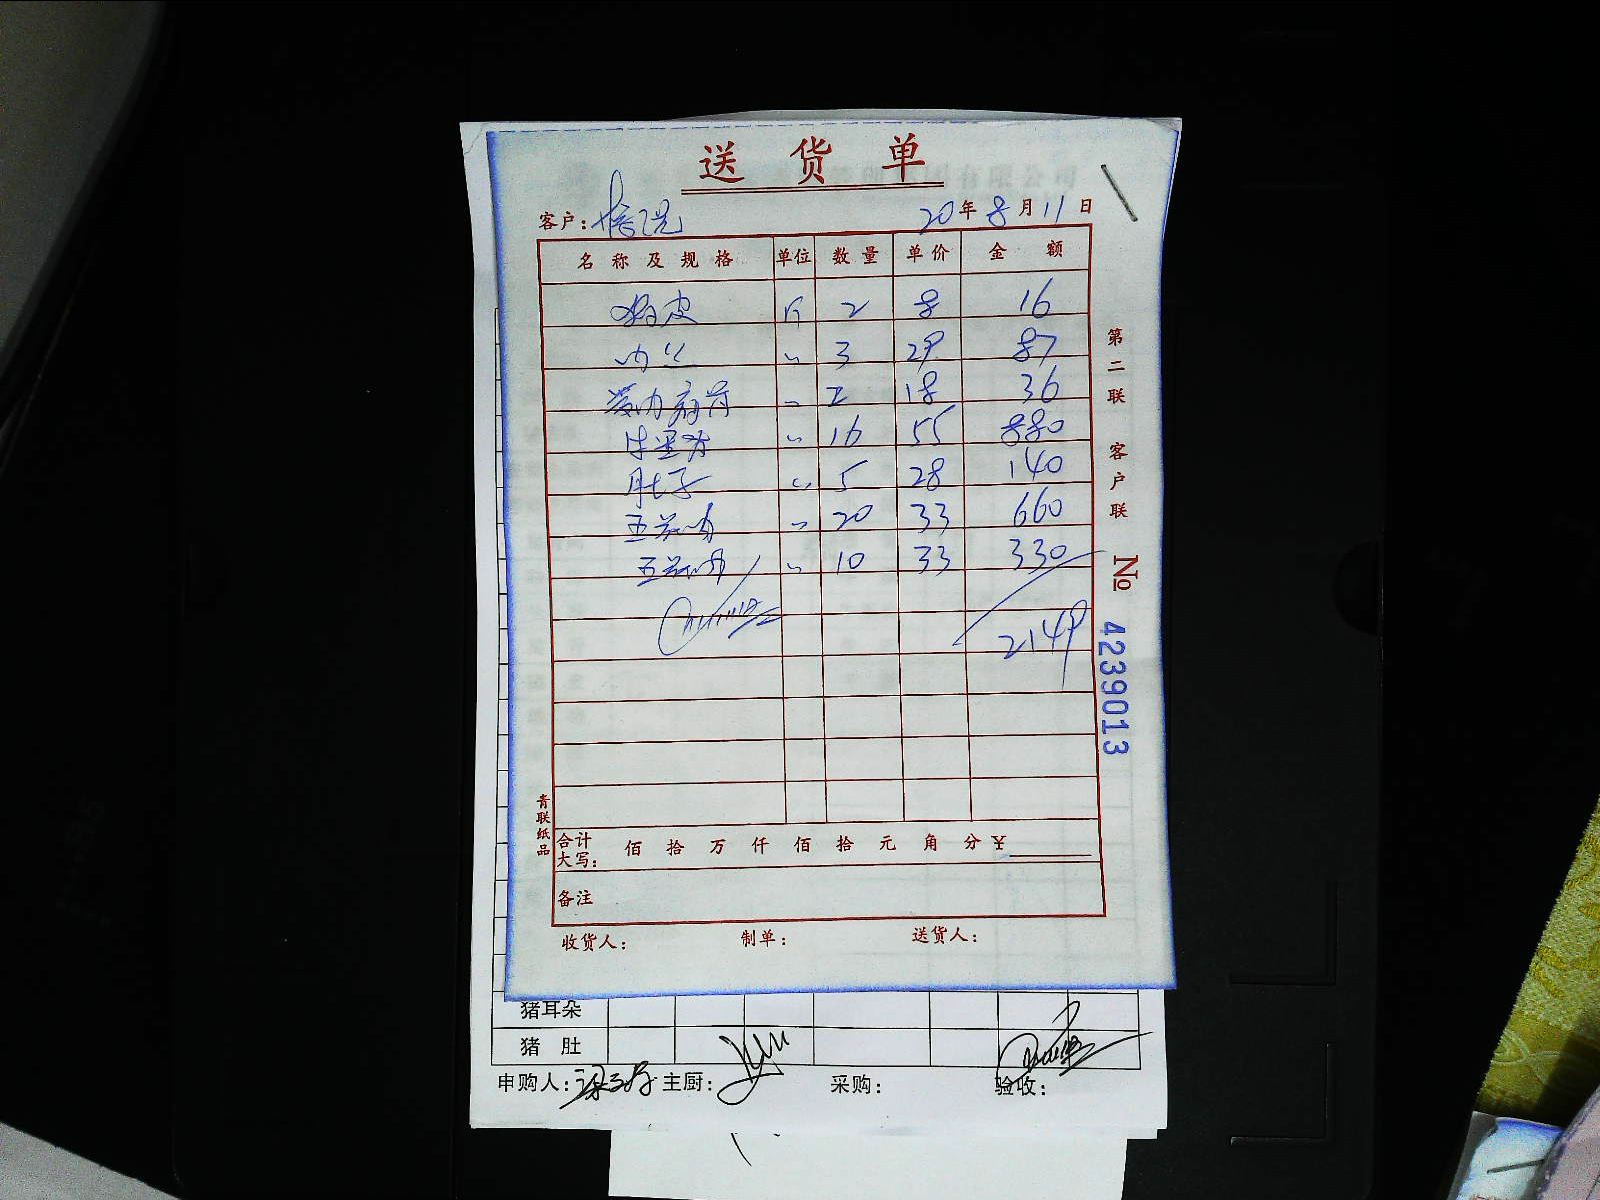 送货单
客户:
20年8月11日
名称及规格 单位 数量 单价 金额
皮 斤 2 8 16
肉丝 〃 3 29 87
带肉扇骨 〃 2 18 36
牛里脊 〃 16 55 880
肚子 〃 5 28 140
五花肉 〃 20 33 660
五花肉 〃 10 33 330
2149
合计大写: 佰 拾 万 仟 佰 拾 元 角 分 ¥
备注
收货人: 制单: 送货人:
第二联 客户联
No 4239013
青联纸品
猪耳朵
猪肚
申购人: 主厨: 采购: 验收: